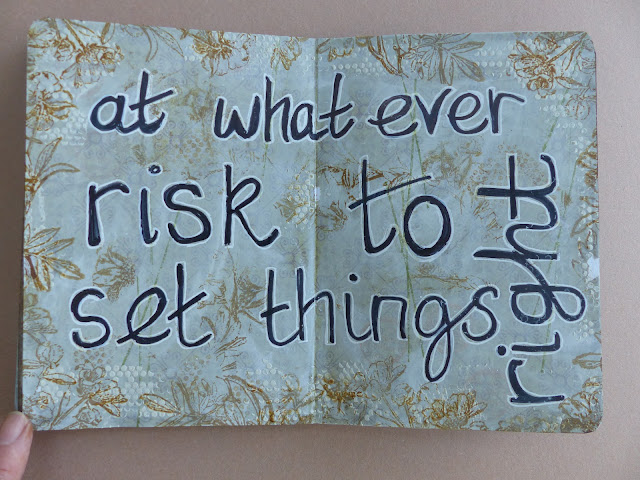 at what ever
risk to
set things
right